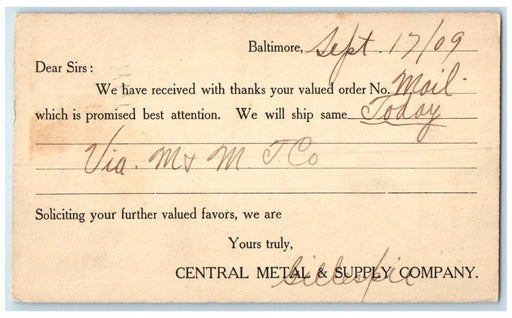 Baltimore, Sept. 17/09
Dear Sirs:
We have received with thanks your valued order No. Mail.
which is promised best attention. We will ship same Today
Via. M & M. T Co
Soliciting your further valued favors, we are
Yours truly,
CENTRAL METAL & SUPPLY COMPANY.
Gillespie